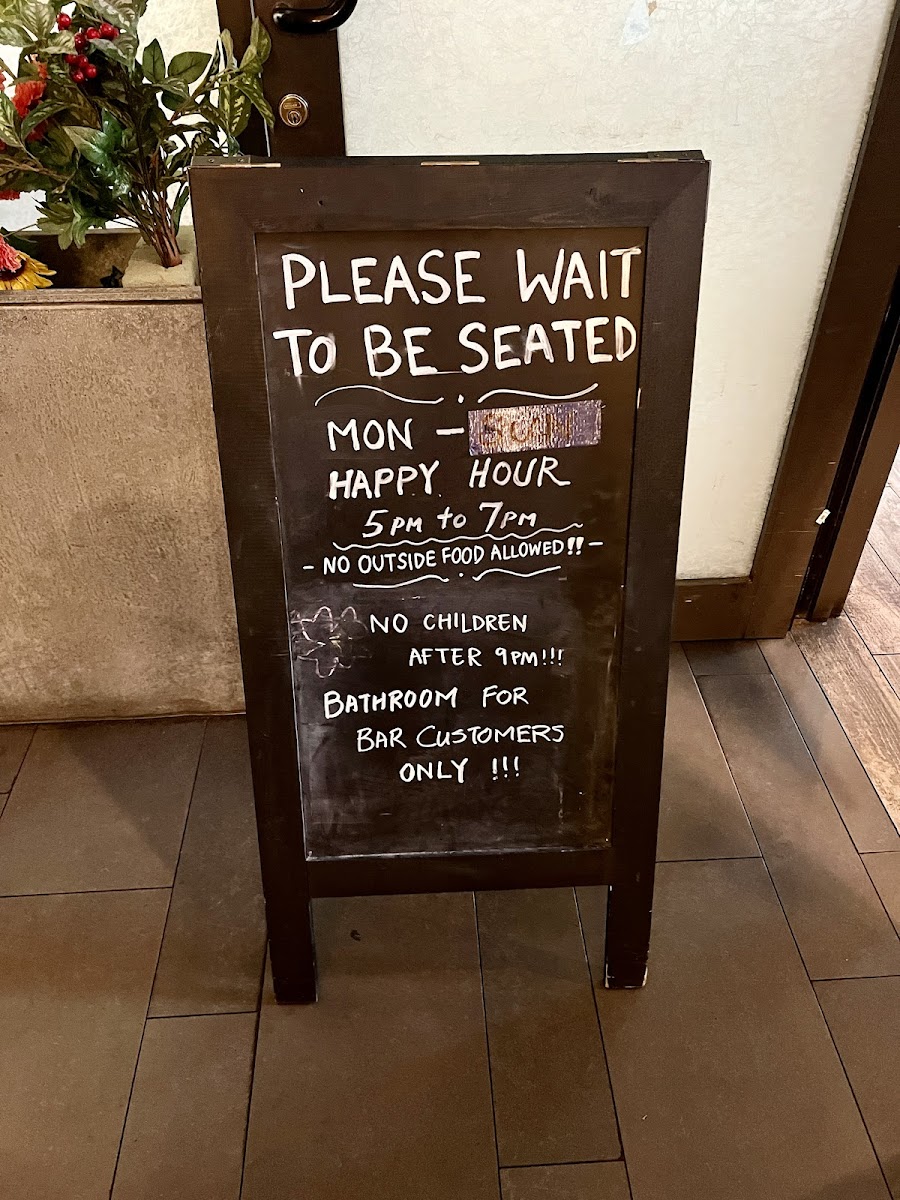 PLEASE WAIT
TO BE SEATED
MON –
HAPPY HOUR
5PM to 7PM
- NO OUTSIDE FOOD ALLOWED!! -
NO CHILDREN
AFTER 9PM!!!
BATHROOM FOR
BAR CUSTOMERS
ONLY !!!